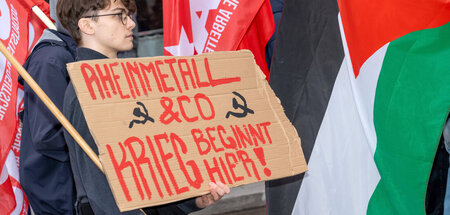 RHEINMETALL
& CO
KRIEG BEGINNT
HIER!